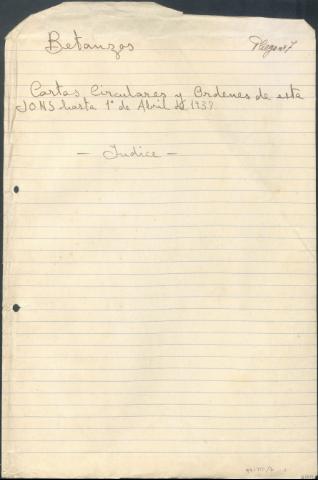 Betanzos
Cartas Circulares y Ordenes de esta
JONS hasta 1º de Abril de 1938
- Indice -